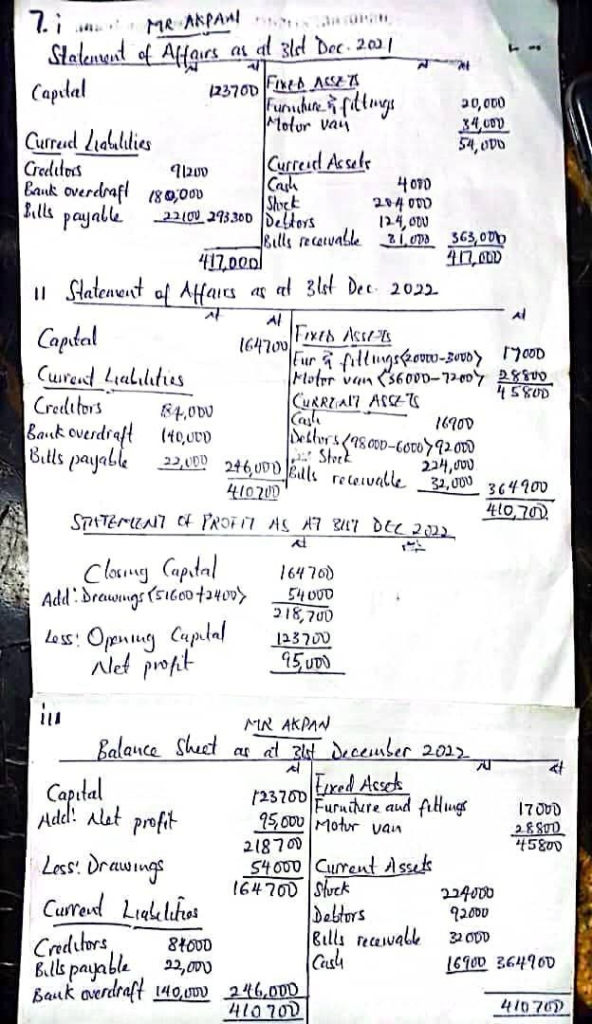 7. i MR AKPAN
Statement of Affairs as at 31st Dec. 2021
N N N N
Capital 123700 FIXED ASSETS
Furniture & fittings 20,000
Motor van 34,000
54,000
Current Liabilities Current Assets
Creditors 91200 Cash 4000
Bank overdraft 180,000 Stock 204000
Bills payable 22100 293300 Debtors 124,000
Bills receivable 31,000 363,000
417,000 417,000
ii Statement of Affairs as at 31st Dec. 2022
N N N
Capital 164700 FIXED ASSETS
Fur & fittings <20000-3000> 17000
Current Liabilities Motor van <36000-7200> 28800
45800
Creditors 84,000 CURRENT ASSETS
Cash 16900
Bank overdraft 140,000 Debtors <98000-6000> 92000
Stock 224,000
Bills payable 22,000 246,000 Bills receivable 32,000 364900
410700 410,700
STATEMENT OF PROFIT AS AT 31ST DEC 2022
N
Closing Capital 164700
Add: Drawings <51600+2400> 54000
218,700
Less: Opening Capital 123700
Net profit 95,000
iii MR AKPAN
Balance Sheet as at 31st December 2022
N N N
Capital 123700 Fixed Assets
Add: Net profit 95,000 Furniture and fittings 17000
218700 Motor van 28800
45800
Less: Drawings 54000 Current Assets
164700 Stock 224000
Current Liabilities Debtors 92000
Creditors 84000 Bills receivable 32000
Bills payable 22,000 Cash 16900 364900
Bank overdraft 140,000 246,000
410700 410700